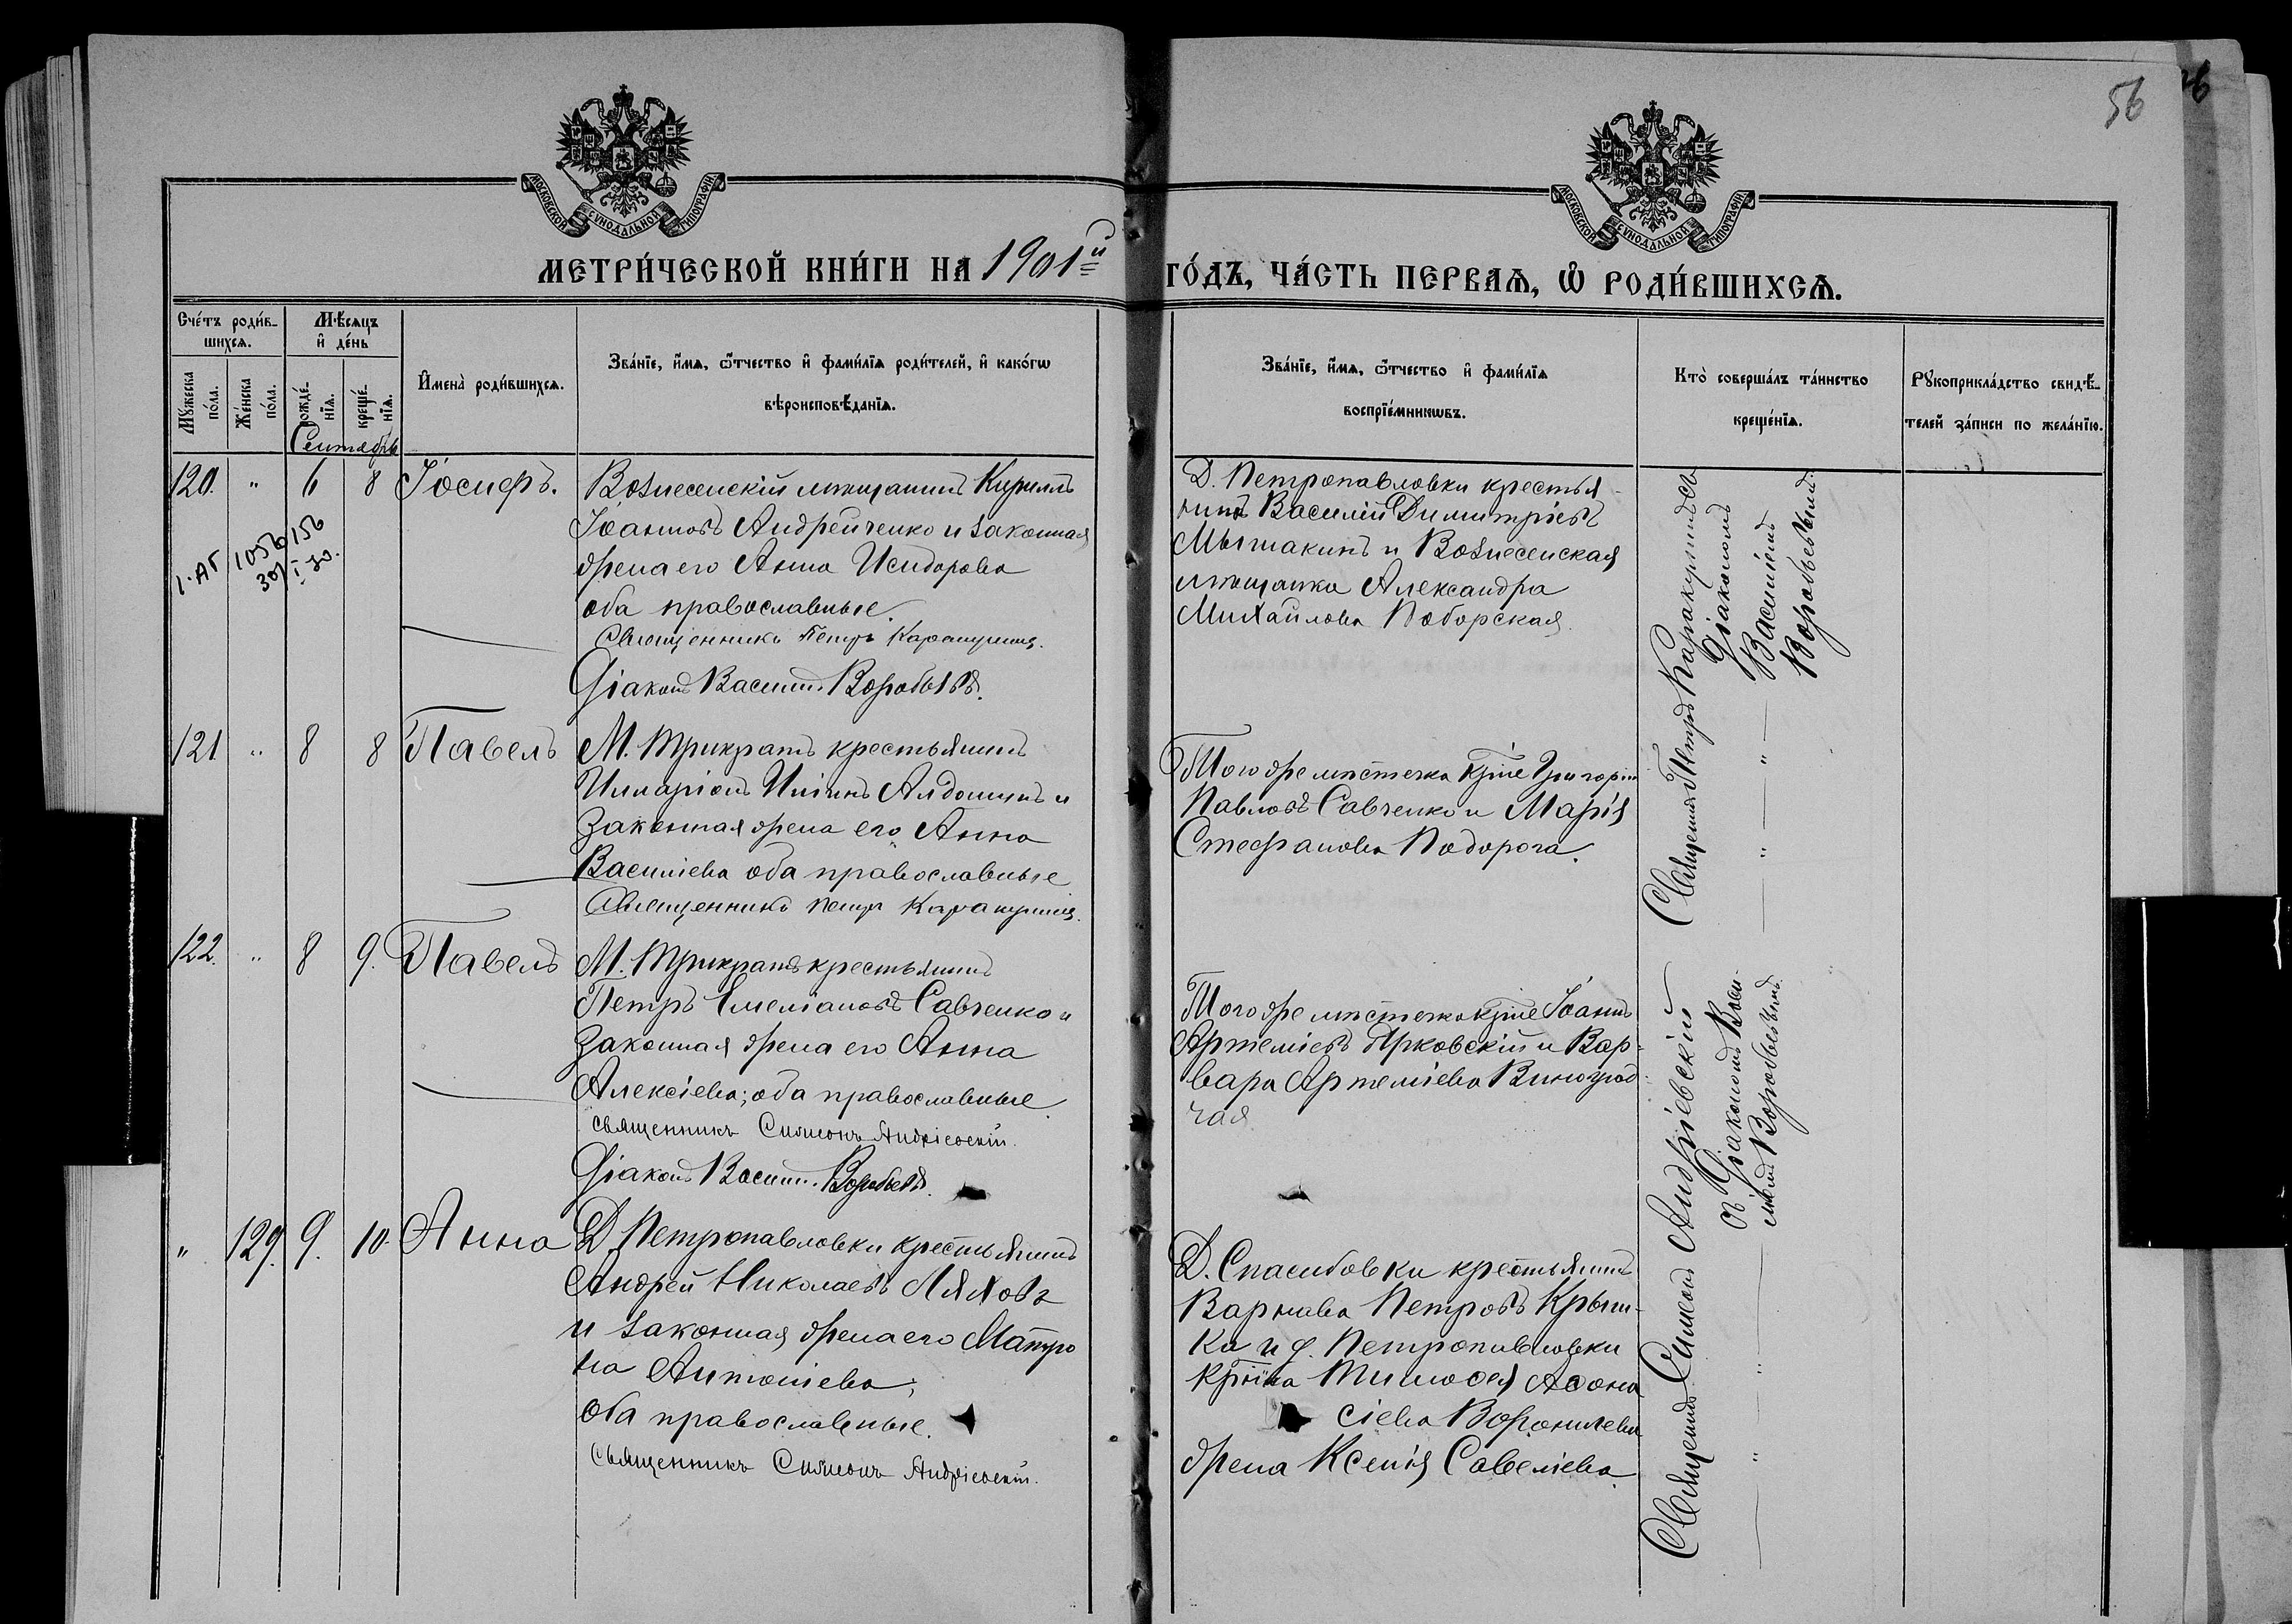 56
МОСКОВСКОЙ СѴНОДАЛЬНОЙ ТИПОГРАФІИ
МОСКОВСКОЙ СѴНОДАЛЬНОЙ ТИПОГРАФІИ
МЕТРИ́ЧЕСКОЙ КНИ́ГИ НА 1901й ГО́ДЪ, ЧА́СТЬ ПЕРВАѦ, Ѡ҆ РОДИ́ВШИХСѦ.
Сче́тъ роди́в-
шихсѧ.
Мꙋжеска по́ла.
Же́нска по́ла.
Мѣ́сѧцъ
и҆ де́нь
рожде́-
нїѧ.
креще́-
нїѧ.
И҆мена̀ роди́вшихсѧ.
Зва́нїе, и҆́мѧ, ѻ҆́тчество и҆ фами́лїѧ роди́телей, и҆ како́гѡ
вѣроисповѣ́данїѧ.
Зва́нїе, и҆́мѧ, ѻ҆́тчество и҆ фами́лїѧ
воспрїе́мникѡвъ.
Кто̀ соверша́лъ та́инство
креще́нїѧ.
Рꙋкоприкла́дство свидѣ́-
телей за́писи по жела́нїю.
Сентябрь
120. " 6 8 Іосифъ.
Вознесенскій мѣщанинъ Кириллъ
Іоанновъ Андрейченко и законная
жена его Анна Исидорова
оба православные.
Священникъ Петръ Каракулинъ.
Діаконъ Васил. Воробьевъ.
Д. Петропавловки крестья-
нинъ Василій Димитріевъ
Мышакинъ и Вознесенская
мѣщанка Александра
Михайлова Поборская.
Священникъ Петръ Каракулинъ съ
Діакономъ
Василіемъ
Воробьевымъ.
121 " 8 8 Павелъ
М. Трикратъ крестьянинъ
Иларіонъ Иліинъ Алдошинъ и
законная жена его Анна
Василіева оба православные
Священникъ Петръ Каракулинъ.
Того же мѣстечка кр̅не Григорій
Павловъ Савченко и Марія
Стефанова Подорога.
122. " 8 9. Павелъ
М. Трикратъ крестьянинъ
Петръ Емеліановъ Савченко и
законная жена его Анна
Алексіева; оба православные
священникъ Симеонъ Андріевскій.
Діаконъ Васил. Воробьевъ.
Того же мѣстечка кр̅не Іоаннъ
Артеміевъ Ярковскій и Вар-
вара Артеміева Виноград-
чая
Священникъ Симеонъ Андріевскій
съ Діакономъ Васи-
ліемъ Воробьевымъ.
" 129. 9. 10. Анна
Д. Петропавловки крестьянинъ
Андрей Николаевъ Ляховъ
и законная жена его Матро
на Антоніева;
оба православные.
Священникъ Симеонъ Андріевскій.
Д. Спасибовки крестьянинъ
Варнава Петровъ Крыш-
ка и д. Петропавловки
кр̅нина Тимофея Афона
сіева Воронилева
жена Ксенія Савеліева.